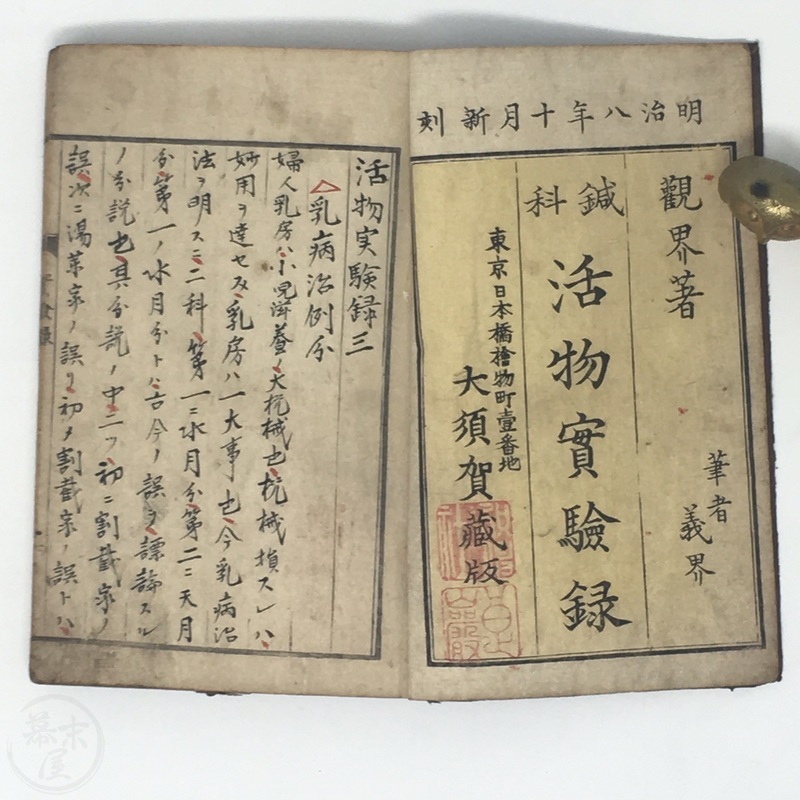 明治八年十月新刻
觀界著
筆者
義界
鍼科
活物實驗録
東京日本橋檜物町壹番地
大須賀藏版
活物実驗録三
△乳病治例分
婦人乳房ハ小児滋養ノ大機械也機械損スレハ
妙用ヲ達セス乳房ハ一大事也今乳病治
法ヲ明スニ二科第一ニ水月分第二ニ天月
分第一ノ水月分トハ古今ノ誤ヲ標諭スル
ノ分説也其分説ノ中二ツ初ニ割截家ノ
誤次ニ湯薬家ノ誤リ初メ割截家ノ誤トハ
幕末屋